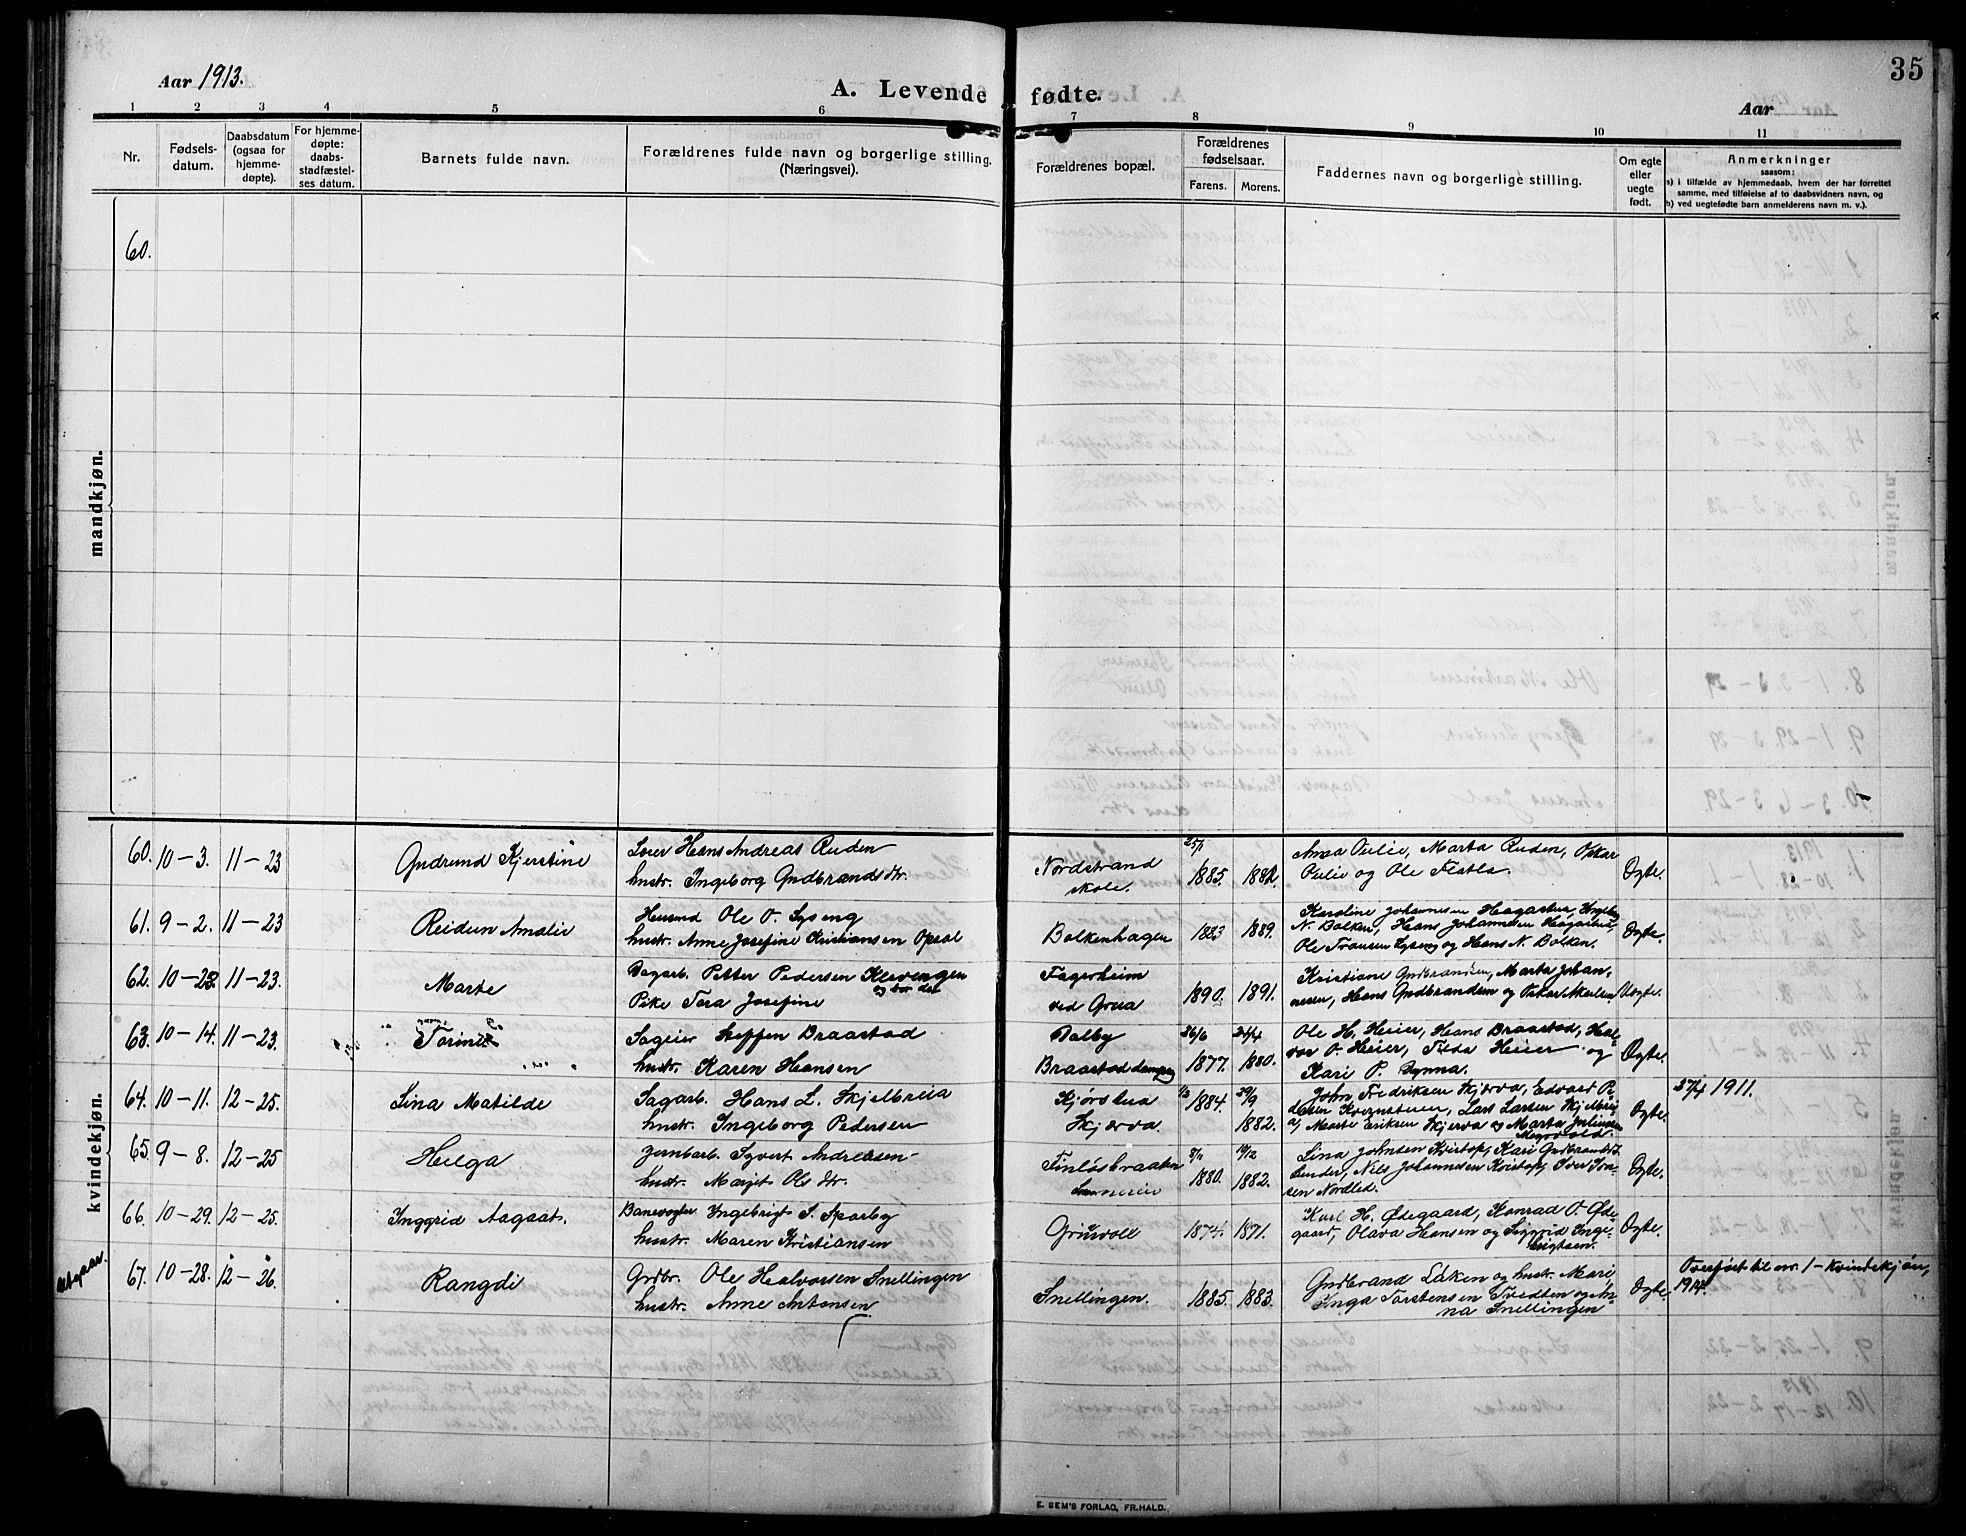 35
Aar 1913.
A. Levende fødte.
Aar
1 2 3 4 5 6 7 8 9 10 11
Nr.
Fødsels-
datum.
Daabsdatum
(ogsaa for
hjemme-
døpte).
For hjemme-
døpte:
daabs-
stadfæstel-
ses datum.
Barnets fulde navn.
Forældrenes fulde navn og borgerlige stilling.
(Næringsvei).
Forældrenes bopæl.
Forældrenes
fødselsaar.
Farens. Morens.
Faddernes navn og borgerlige stilling.
Om egte
eller
uegte
født.
Anmerkninger
saasom:
a) i tilfælde av hjemmedaab, hvem der har forrettet
samme, med tilføielse af to daabsvidners navn, og
b) ved uegtefødte barn anmelderens navn m. v.).
mandkjøn.
60.
kvindekjøn.
60. 10-3. 11-23 Gudrund Kjerstine
Hans Andreas Ruden
hustr. Ingeborg Gudbrandsdtr.
Nordstrand
skole.
1885. 1882.
Marta Ruden, Oskar
og Ole Flatla.
Egte.
61. 9-2. 11-23 Reidun Amalie
Husmd Ole O. Lyseng
hustr. Anne Josefine Kristiansen Opsal
Bolkenhagen
1883 1889.
Karoline Johannesen Hagastue, Ingebor
N. Bolken, Hans Johannesen Hagastue,
Ole Fransen Lyseng og Hans N. Bolken.
Egte.
62. 10-23. 11-23. Marte
Dagarb. Petter Pedersen Klevengen
Pike Tora Josefine
Fagerheim
ved Grua
1890. 1891.
Kristiane Gudbrandsen, Marta Johan,
nesen, Hans Gudbrandsen og Oskar
Uegte.
63. 10-14. 11-23.
Sageier Steffen Braastad
hustr. Karen Hansen
Dalby
Braastad
26/6 24/4
1877. 1880.
Ole H. Heier, Hans Braastad, Hal-
vor O. Heier, Tilda Heier og
Kari P. Dynna.
Egte.
64. 10-11. 12-25. Lina Matilde
Sagarb. Hans L. Skjelbreia
hustr. Ingeborg Pedersen
Skjerva.
1884. 29/9
1882.
John Fredriksen Skjerva, Edvard Pe-
dersen Kvernstuen, Lars Larsen Skjelbrei
a, Marte Eriksen Skjerva og Marta
Egte.
27/4 1911.
65. 9-8. 12-25 Helga
Jernarb. Syvert Andreasen
hustr. Marget Olsdtr.
Finlösbraaten
1880. 1882.
Lina Johnsen Kristop, Kari Gudbrandsd.
Nils Johannesen Kristop, Iver
sen Nordled.
Egte.
66. 10-29. 12-25. Inggrid Aagaat.
Banevogter Ingebrigt S. Sparby
hustr. Maren Kristiansen
Grinvoll
1874. 1871.
Karl H. Ødegaard, Konrad O. Øde-
gaard, Olava Hansen og Siggrid Inge-
brigtsen.
Egte.
Utgaar.
67. 10-28. 12-26. Rangdi
Grdbr. Ole Halvorsen Snellingen
hustr. Anne Antonsen
Snellingen.
1885. 1883.
Gudbrand Laken og hustr. Mari,
Inga Torstensen Tvedten og An-
na Snellingen
Egte.
Overført til nr. 1 - kvindekjøn,
1914.
E. SEM'S FORLAG, FR.HALD.